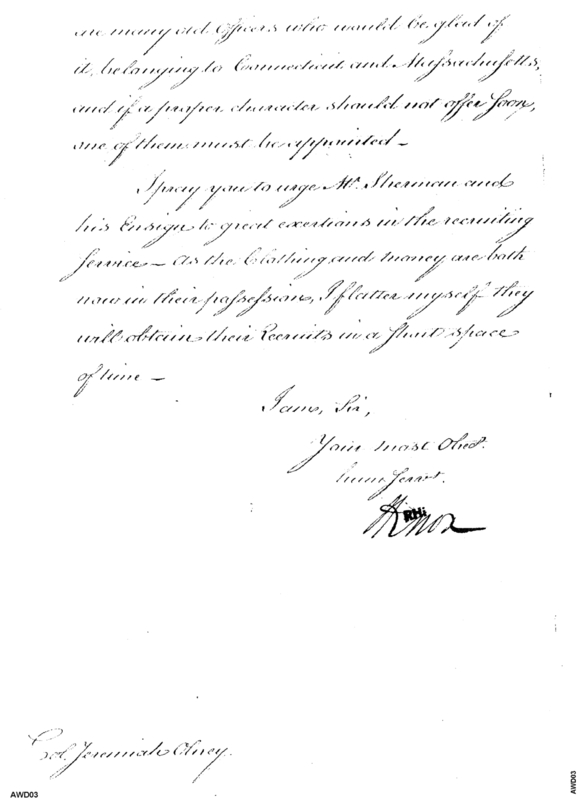 are many old officers who would be glad of
it, belonging to Connecticut and Massachusetts,
and if a proper character should not offer soon,
one of them must be appointed —
I pray you to urge Mr. Sherman and
his Ensign to great exertions in the recruiting
service — As the Clothing and money are both
now in their possession, I flatter myself they
will obtain their Recruits in a short space
of time —
I am, Sir,
Your most Obedt.
hum Servt.
HKnox
RHi
Col. Jeremiah Olney.
AWD03
AWD03